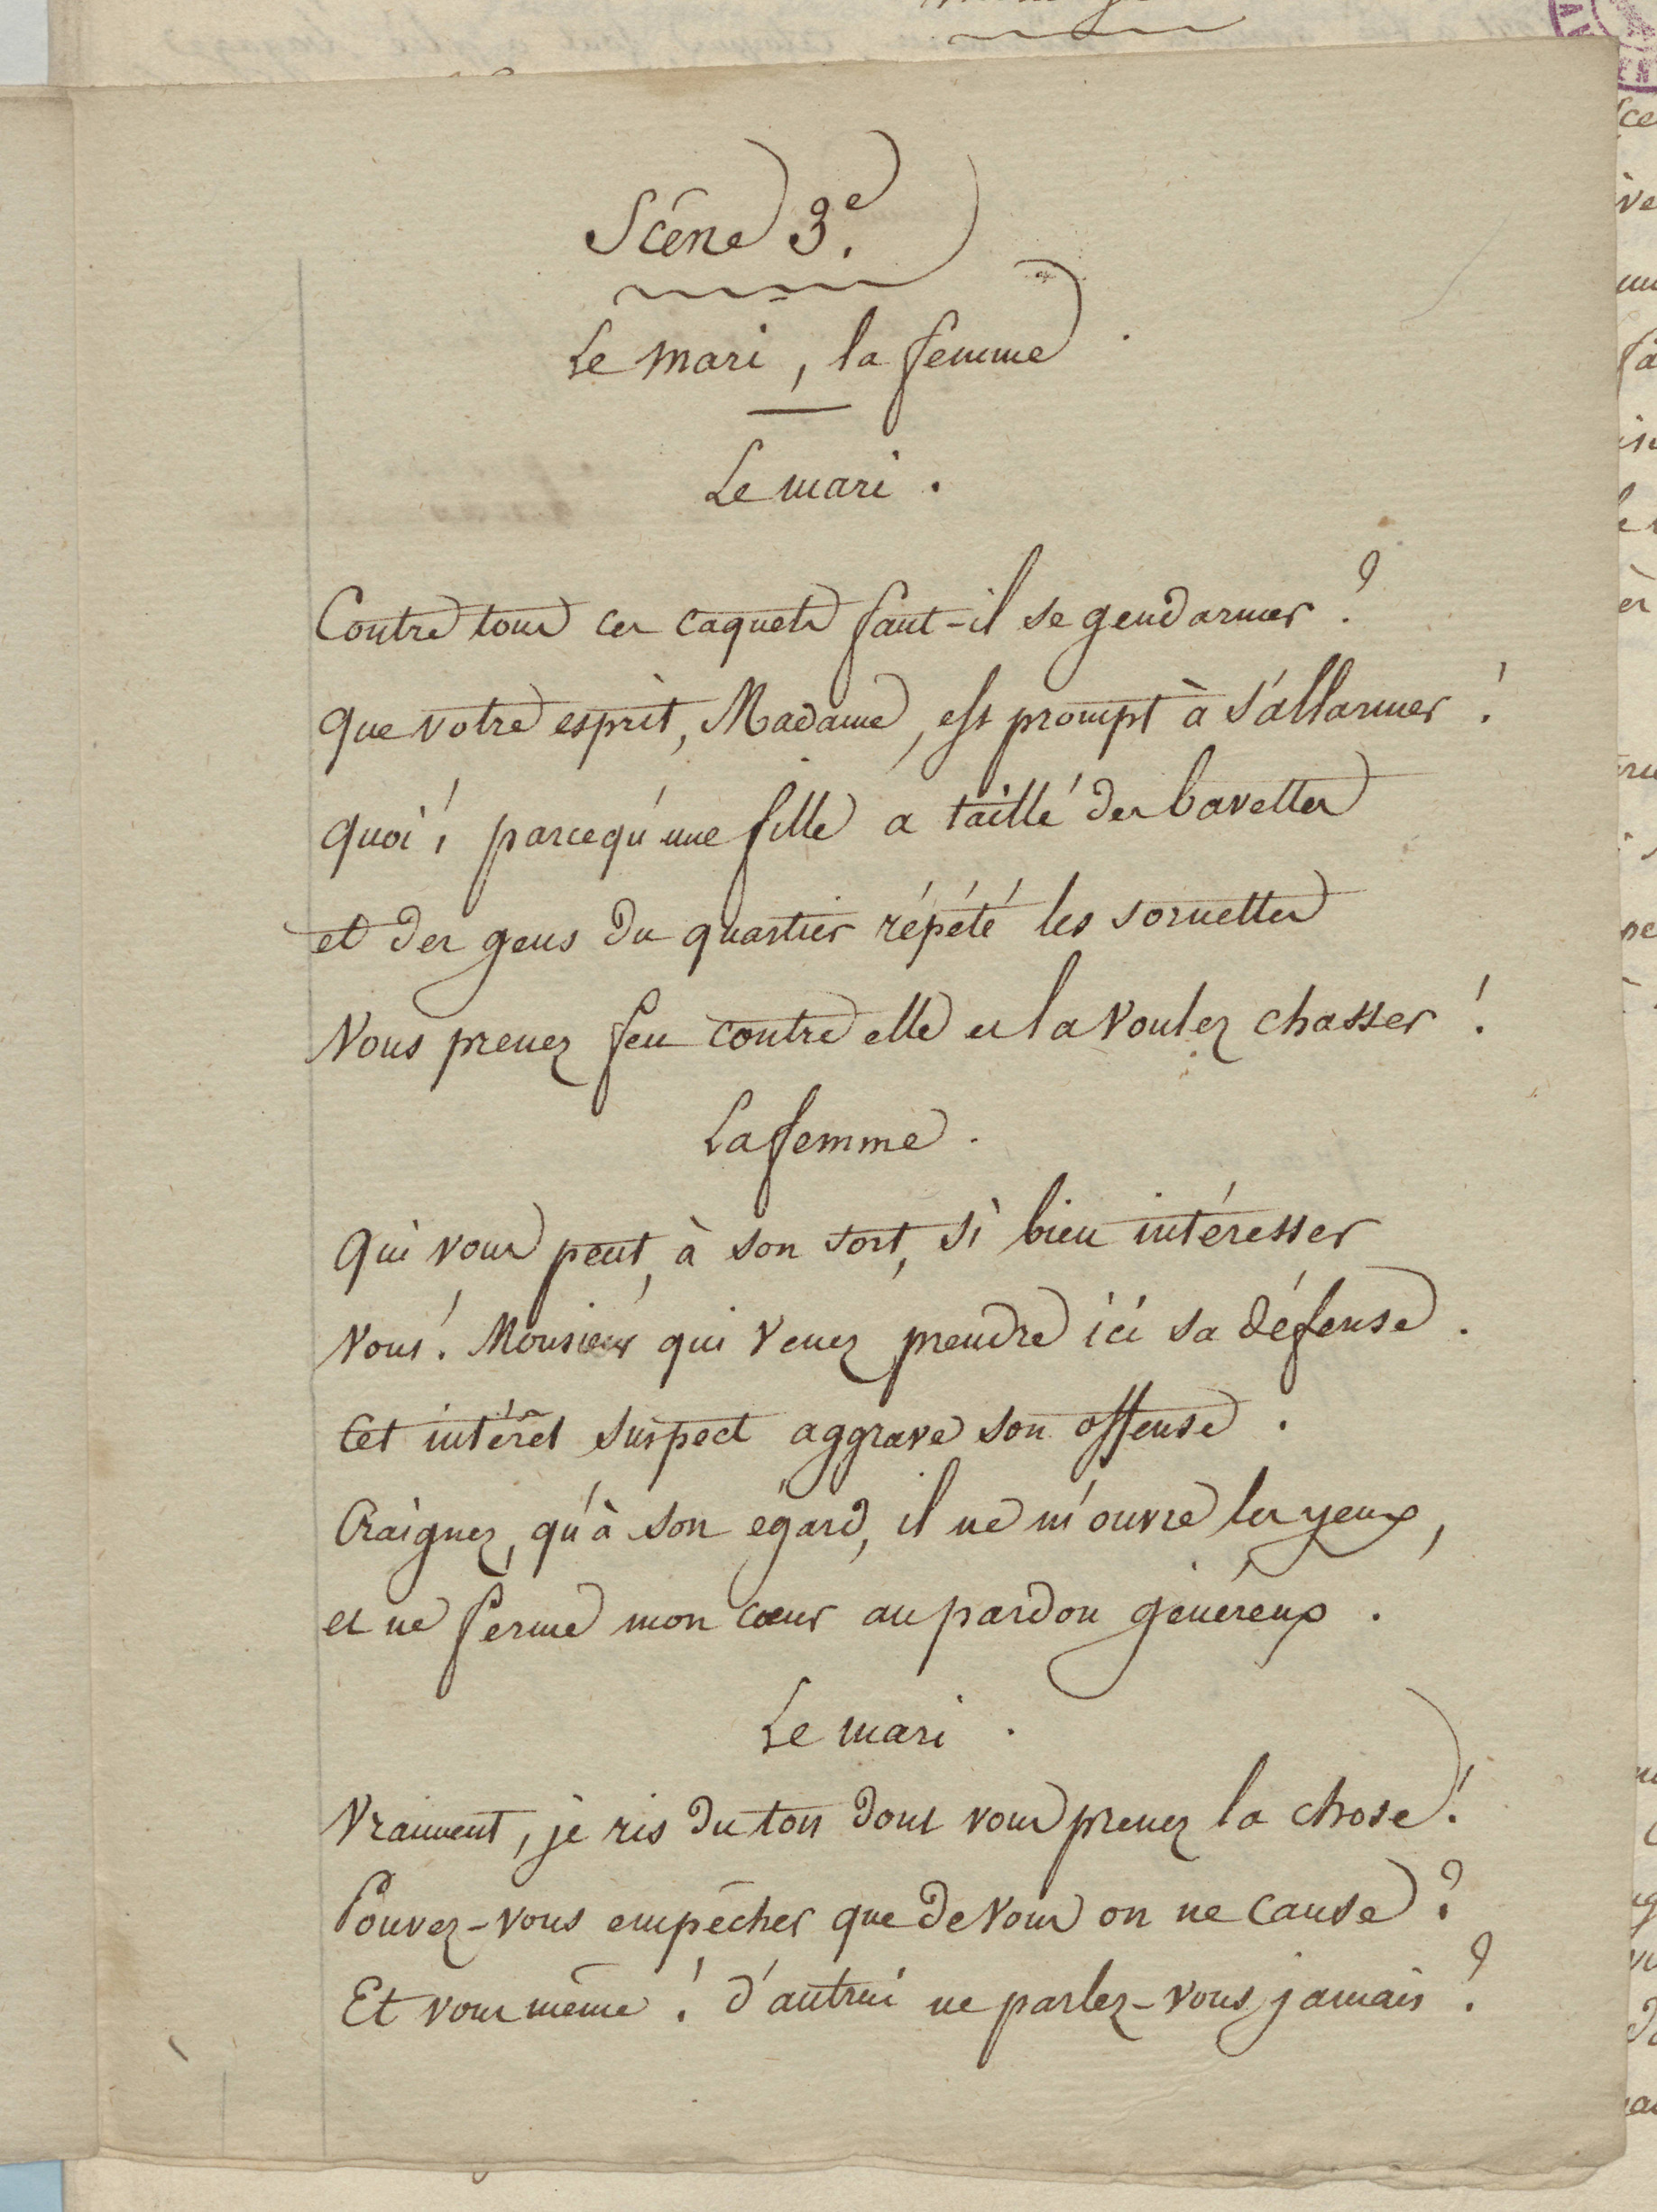 Scéne 3.e
Le mari, la femme.
Le mari.
Contre tous ces caquets faut-il se gendarmer ?
que votre esprit, Madame, est prompt à s'allarmer !
quoi ! parcequ'une fille a taillé des bavettes
et des gens du quartier répété les sornettes
Vous prenez feu contre elle et la voulez chasser !
La femme.
Qui vous peut, à son sort, si bien intéresser
Vous ! Monsieur qui venez prendre ici sa défense.
Cet intérêt suspect aggrave son offense.
Craignez, qu'à son égard, il ne m'ouvre les yeux,
et ne ferme mon cœur au pardon généreux.
Le mari.
Vraiment, je ris du ton dont vous prenez la chose !
Pouvez-vous empêcher que de vous on ne cause ?
Et vous même ! d'autrui ne parlez-vous jamais ?